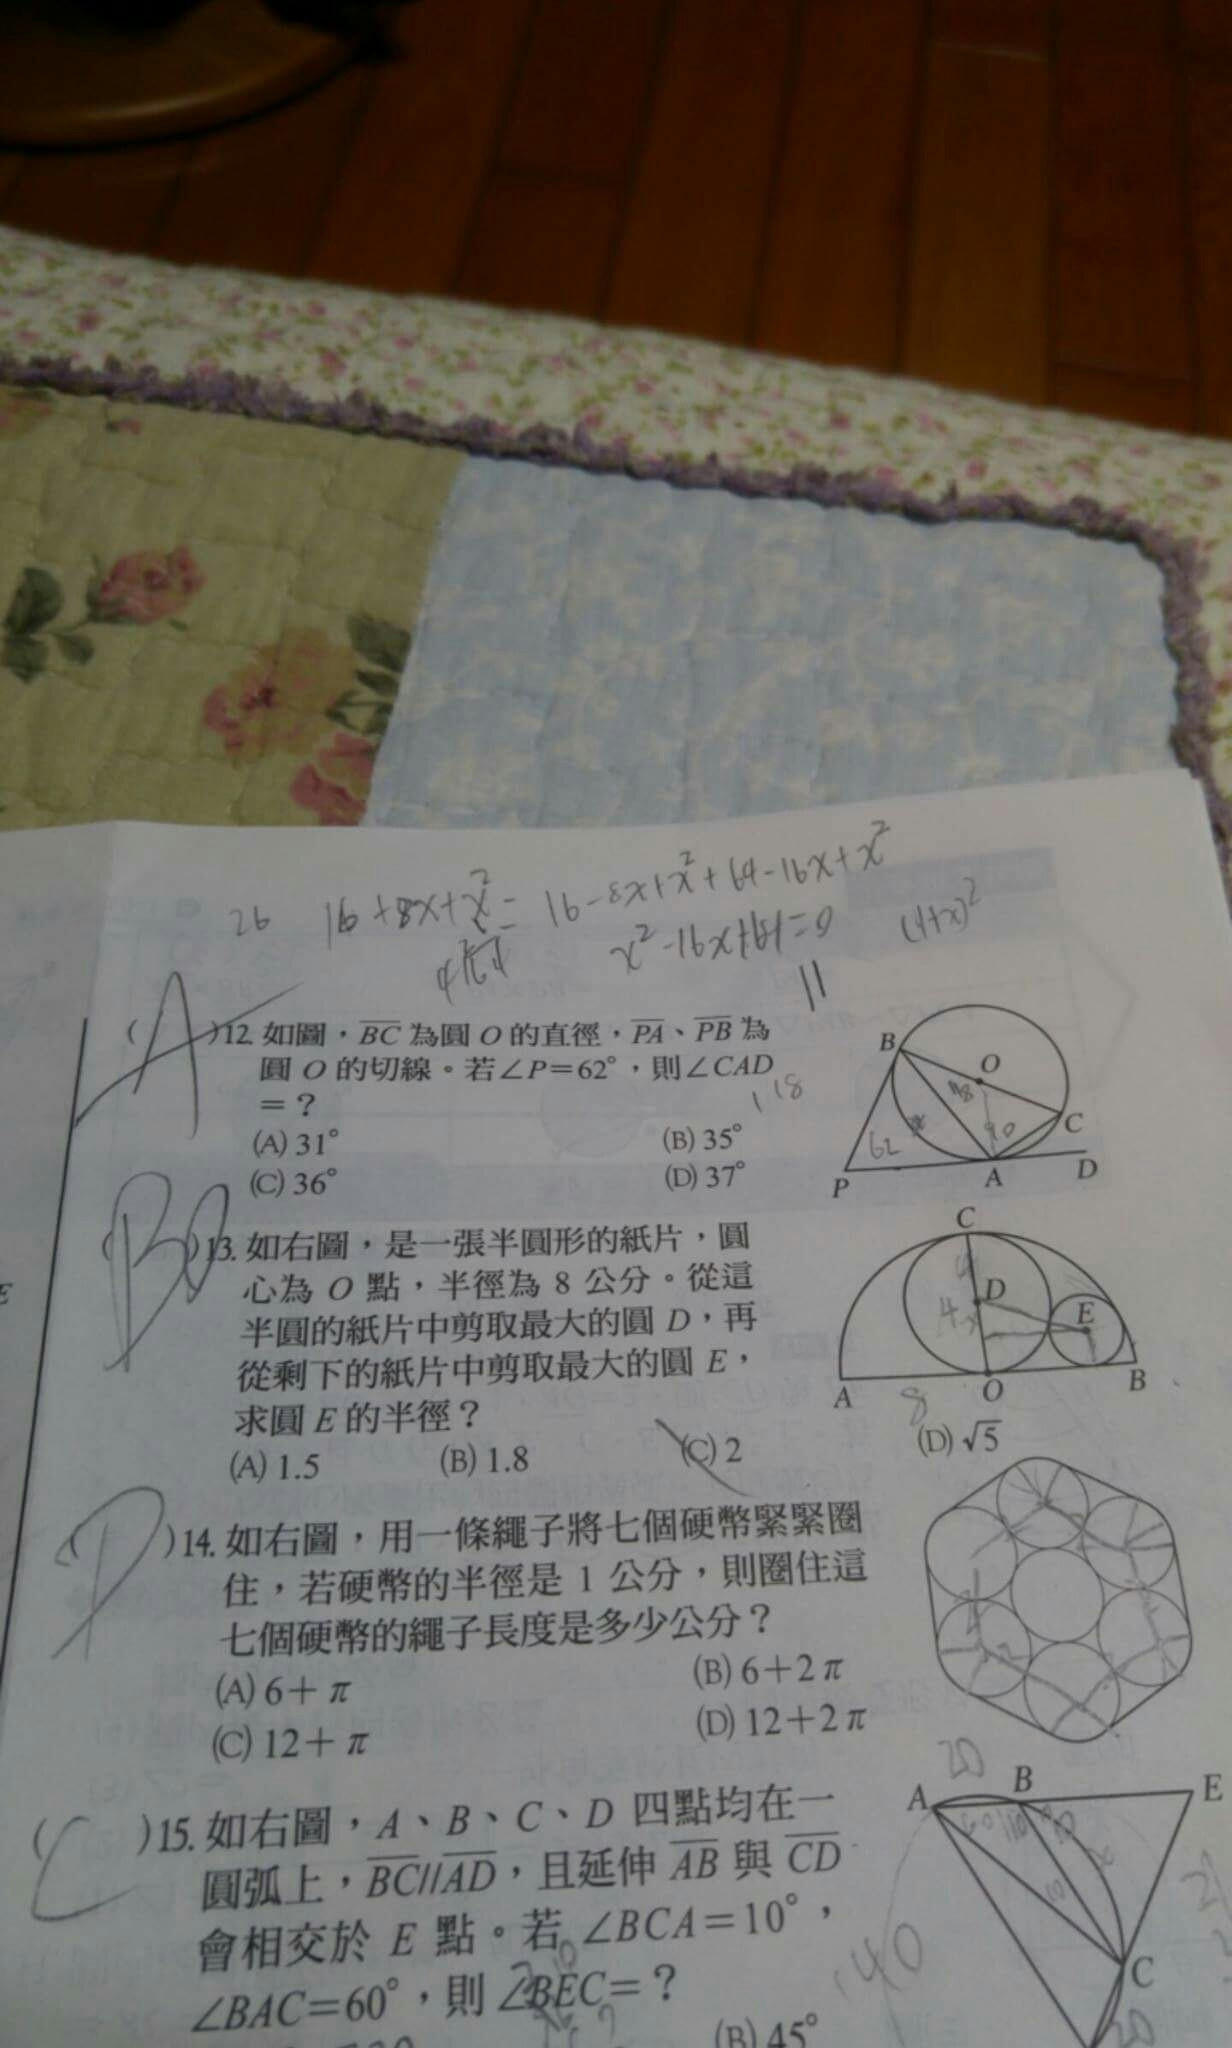 26 16+8x+x²= 16-8x+x²+64-16x+x²
x²-16x+64=0 (4+x)²
11
A
( )12. 如圖，BC 為圓 O 的直徑，PA、PB 為
圓 O 的切線。若∠P=62°，則∠CAD
=？
118
(A) 31° (B) 35°
(C) 36° (D) 37°
B O C 62 90 P A D
B
( )13. 如右圖，是一張半圓形的紙片，圓
心為 O 點，半徑為 8 公分。從這
半圓的紙片中剪取最大的圓 D，再
從剩下的紙片中剪取最大的圓 E，
求圓 E 的半徑？
(A) 1.5 (B) 1.8 (C) 2 (D) √5
C D E 4 A 8 O B
D
)14. 如右圖，用一條繩子將七個硬幣緊緊圈
住，若硬幣的半徑是 1 公分，則圈住這
七個硬幣的繩子長度是多少公分？
(A) 6+π (B) 6+2π
(C) 12+π (D) 12+2π
C
( )15. 如右圖，A、B、C、D 四點均在一
圓弧上，BC//AD，且延伸 AB 與 CD
會相交於 E 點。若∠BCA=10°，
∠BAC=60°，則∠BEC=？
(B) 45°
20 A B E C 140 20